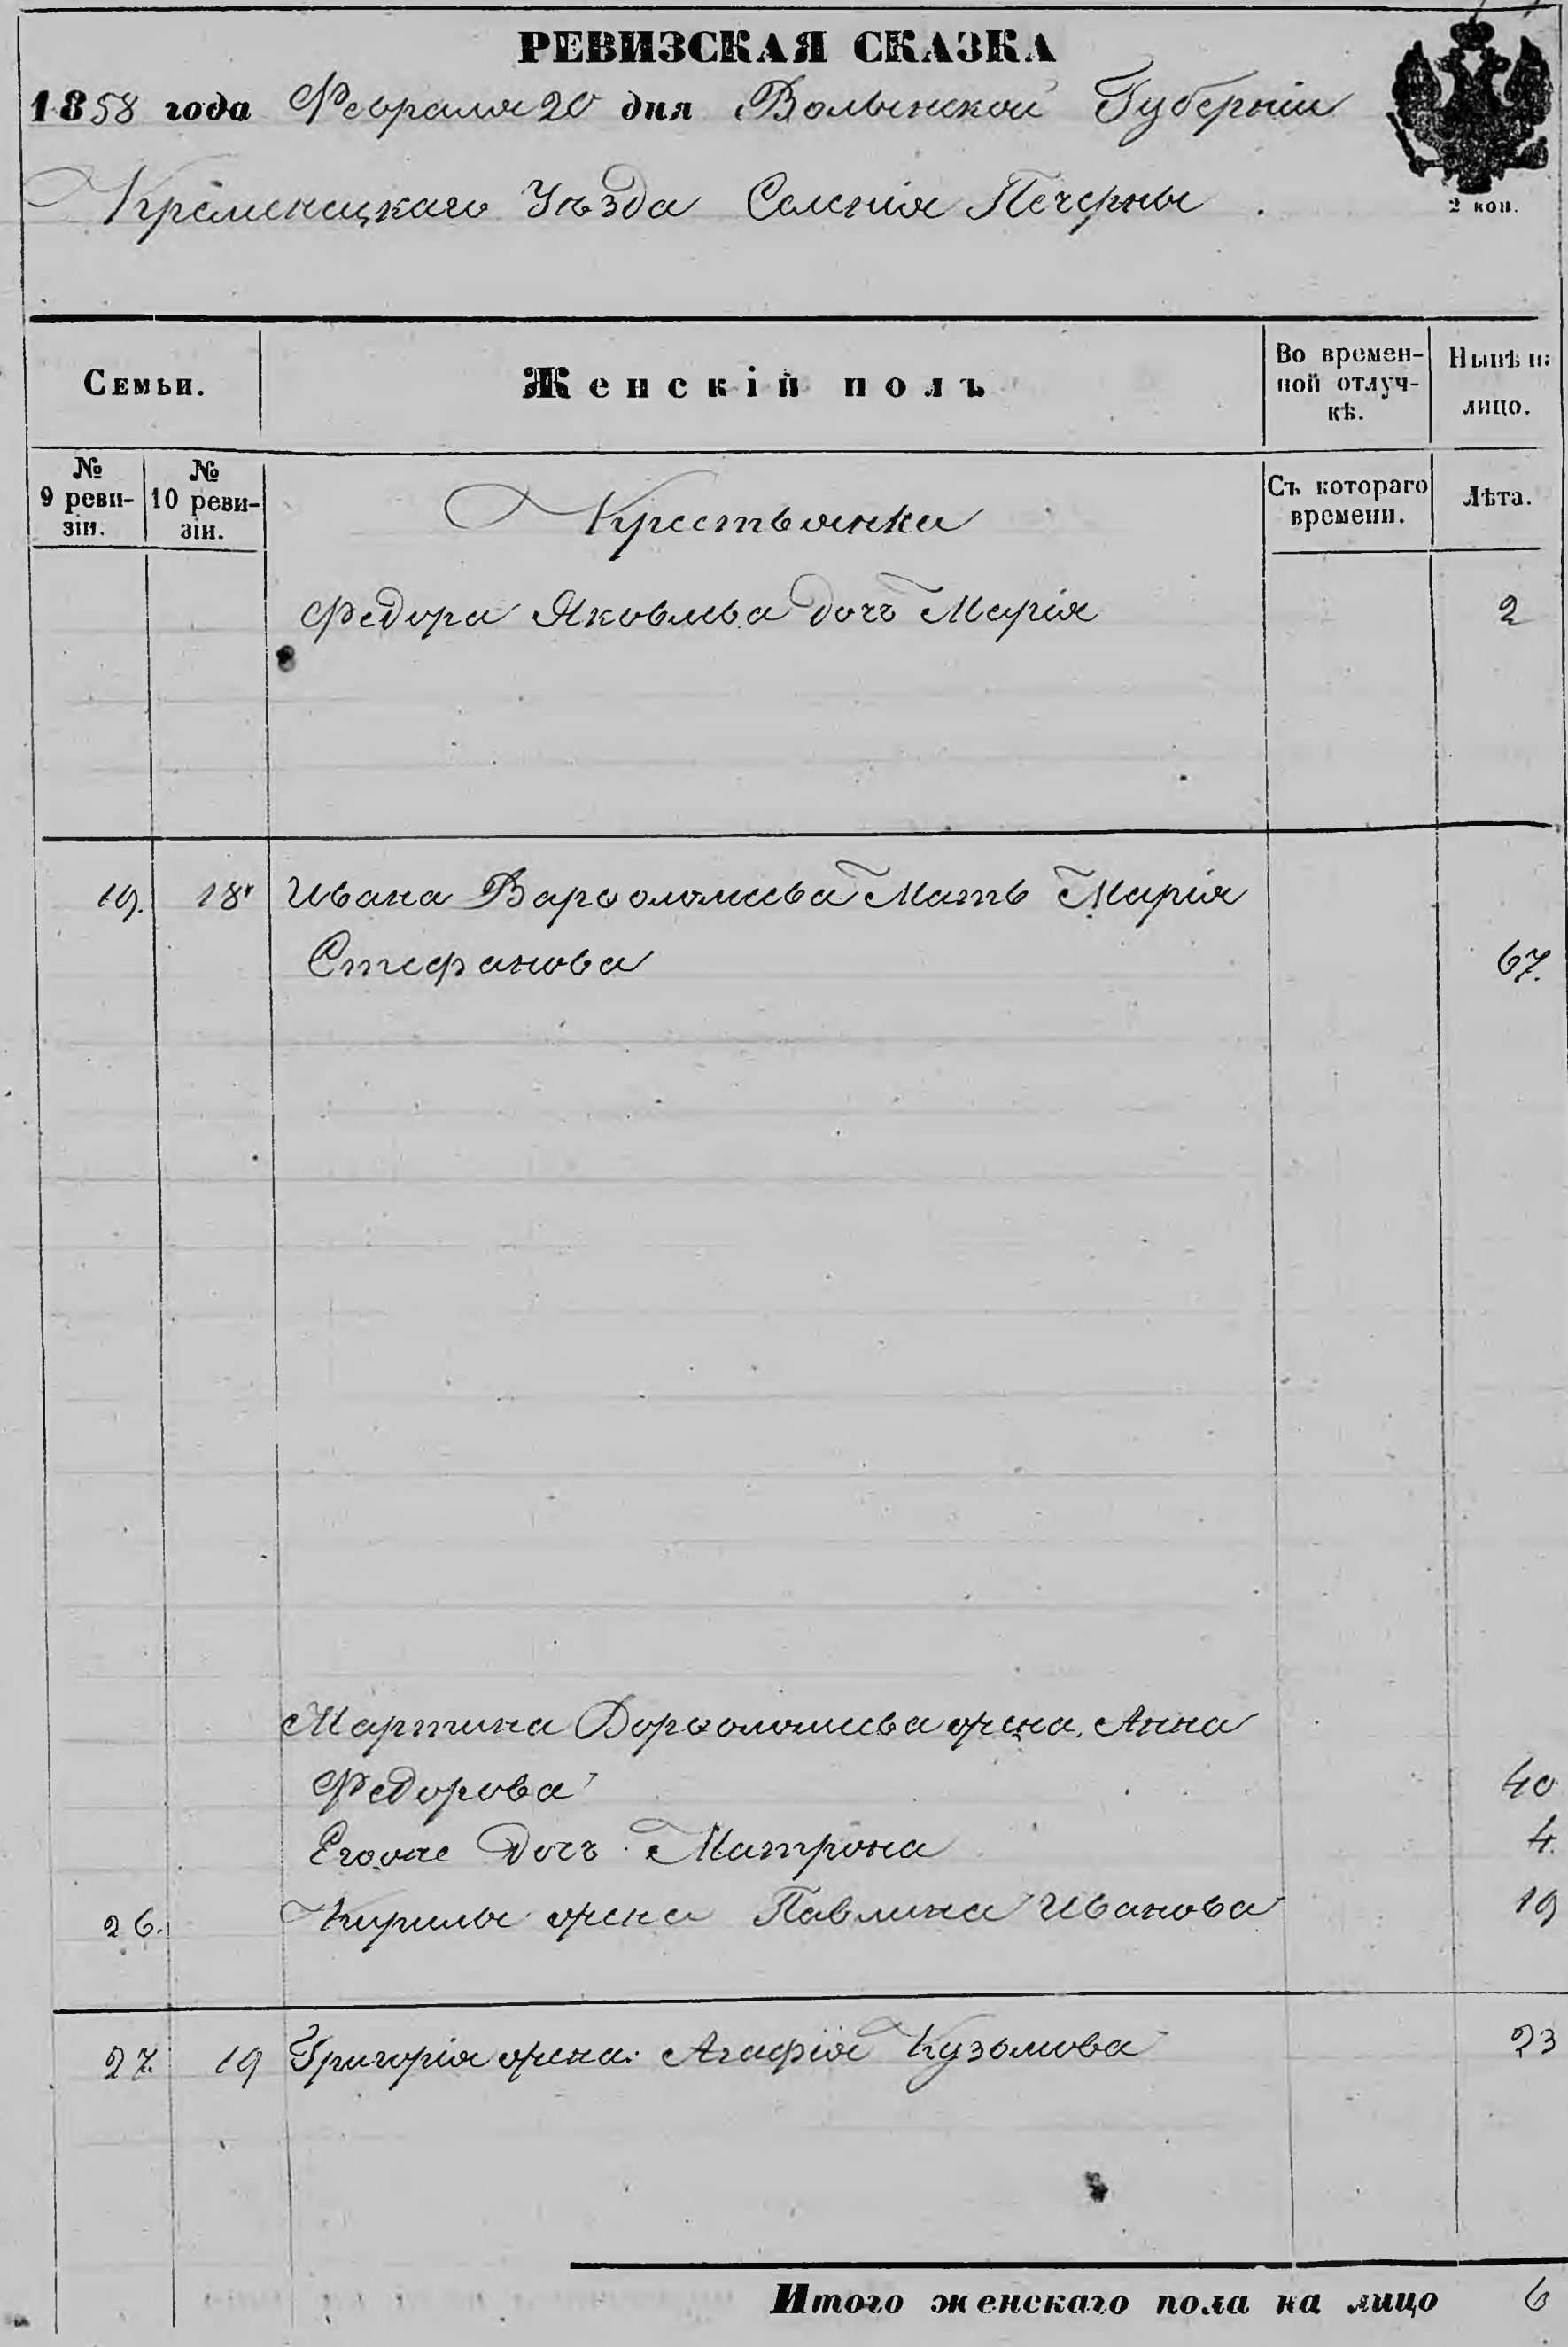 РЕВИЗСКАЯ СКАЗКА
1858 года Февраля 20 дня Волынской Губерніи
Кременецкаго Уѣзда Селенія Печерны
2 коп.
Семьи.
Женскій полъ
Во времен-
ной отлуч-
кѣ.
Нынѣ на
лицо.
№
9 реви-
зіи.
№
10 реви-
зіи.
Крестьянки
Съ котораго
времени.
Лѣта.
Федора Яковлева дочь Марія 2
19. 18 Ивана Варѳоломеева Мать Марія
Стефанова 67.
Мартина Ворѳоломеева жена Анна
Федорова 40
Егоже Дочь Матрона 4.
26. Кирилы жена Павлина Иванова 19
27. 19 Григорія жена Агафія Кузьмова 23
Итого женскаго пола на лицо 6